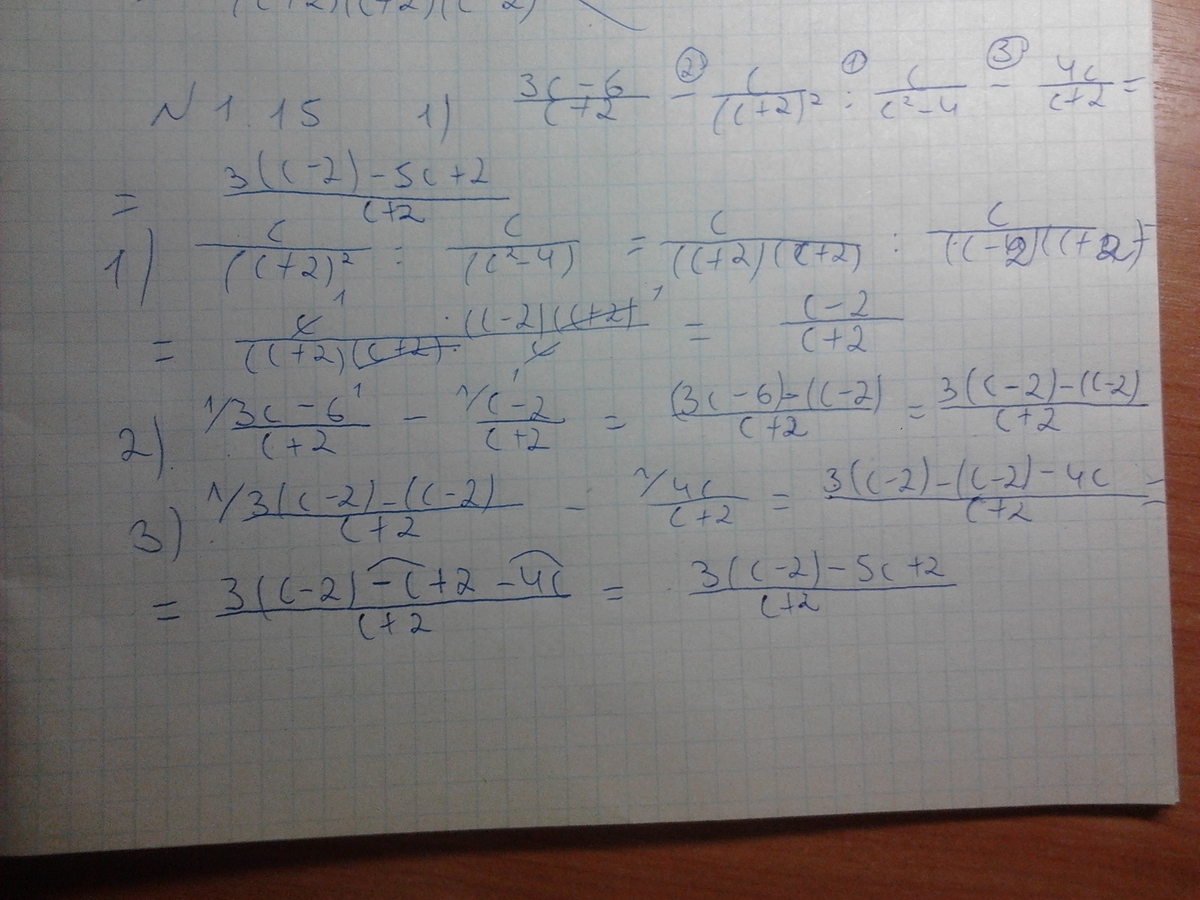 N 1.15 1) (3c-6)/(c+2) - ② c/(c+2)² : ① c/(c²-4) - ③ 4c/(c+2) =
= (3(c-2)-5c+2)/(c+2)
1) c/(c+2)² : c/(c²-4) = c/((c+2)(c+2)) : c/((c-2)(c+2)) =
= (c¹ · (c-2)(c+2)¹)/((c+2)(c+2) · c) = (c-2)/(c+2)
2) ¹/(3c-6)¹/(c+2) - ¹/(c-2)¹/(c+2) = ((3c-6)-(c-2))/(c+2) = (3(c-2)-(c-2))/(c+2)
3) ¹/(3(c-2)-(c-2))/(c+2) - ¹/4c/(c+2) = (3(c-2)-(c-2)-4c)/(c+2) =
= (3(c-2)-c+2-4c)/(c+2) = (3(c-2)-5c+2)/(c+2)